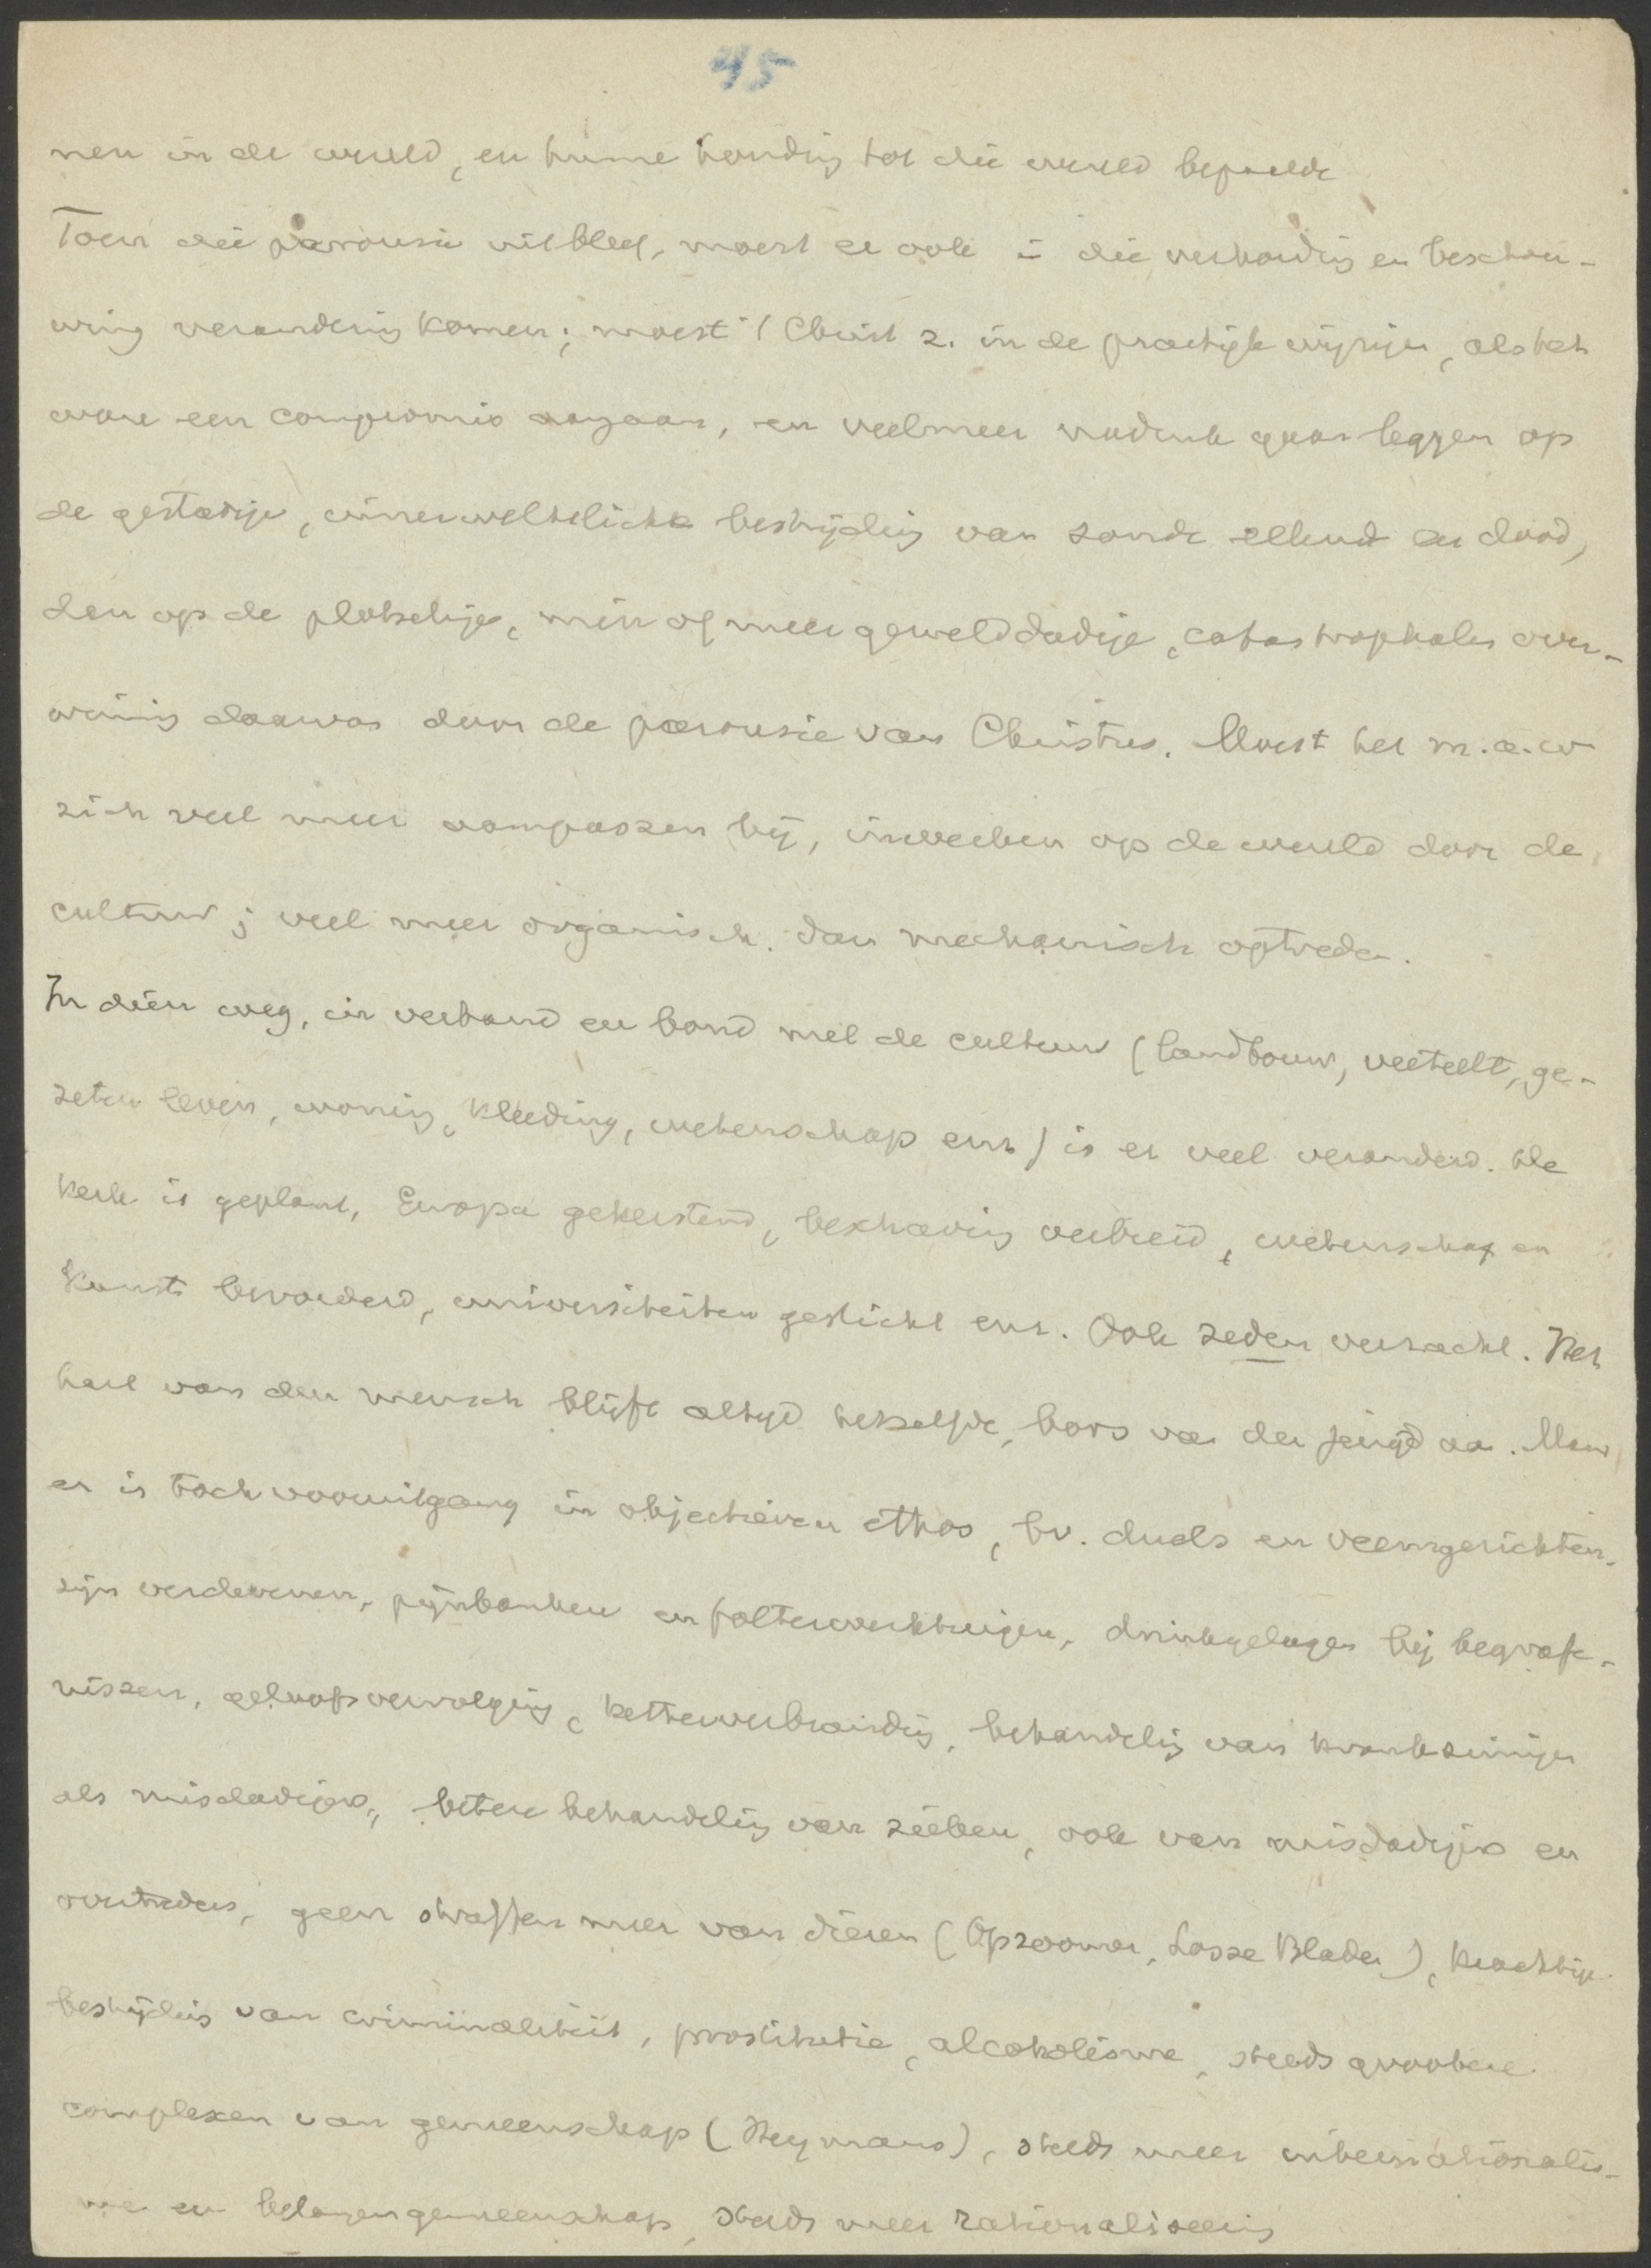 45
nen in de wereld, en hunne houding tot die wereld bepaalde
Toen die parousie uitbleef, moest er ook in die verhouding en beschou-
wing verandering komen; moest 't Christ z. in de practijk wijzigen, als het
ware een compromis aangaan, en veelmeer nadruk gaan leggen op
de gestadige, innerweltliche bestrijding van zonde ellende en dood,
den op de plotselinge, min of meer gewelddadige, catastrophale over-
winning daarvan door de parousie van Christus. Moest het m.a.w
zich veel meer aanpassen bij, inwerken op de wereld door de
cultuur; veel meer organisch. dan mechanisch optreden.
In dien weg, in verband en bond met de cultuur (landbouw, veeteelt, ge-
zeten leven, woning, kleeding, wetenschap enz) is er veel veranderd. De
kerk is geplant, Europa gekerstend, beschaving verbreid, wetenschap en
kunst bevorderd, universiteiten gesticht enz. Ook zeden verzacht. Het
hart van den mensch blijft altijd hetzelfde, boos van der jeugd aan. Maar
er is toch vooruitgang in objectieven ethos, bv. duels en veemgerichten
zijn verdwenen, pijnbanken en folterwerktuigen, drinkgelagen bij begrafe-
nissen, geloofsvervolging, ketterverbranding, behandeling van krankzinnigen
als misdadigers, betere behandeling van zieken, ook van misdadigers en
overtreders, geen straffen meer van dieren (Opzoomer, Losse Bladen), krachtige
bestrijding van criminaliteit, prostitutie, alcoholisme, steeds grootere
complexen van gemeenschap (Heymans), steeds meer internationalis-
me en belangengemeenschap, steeds meer rationaliseering